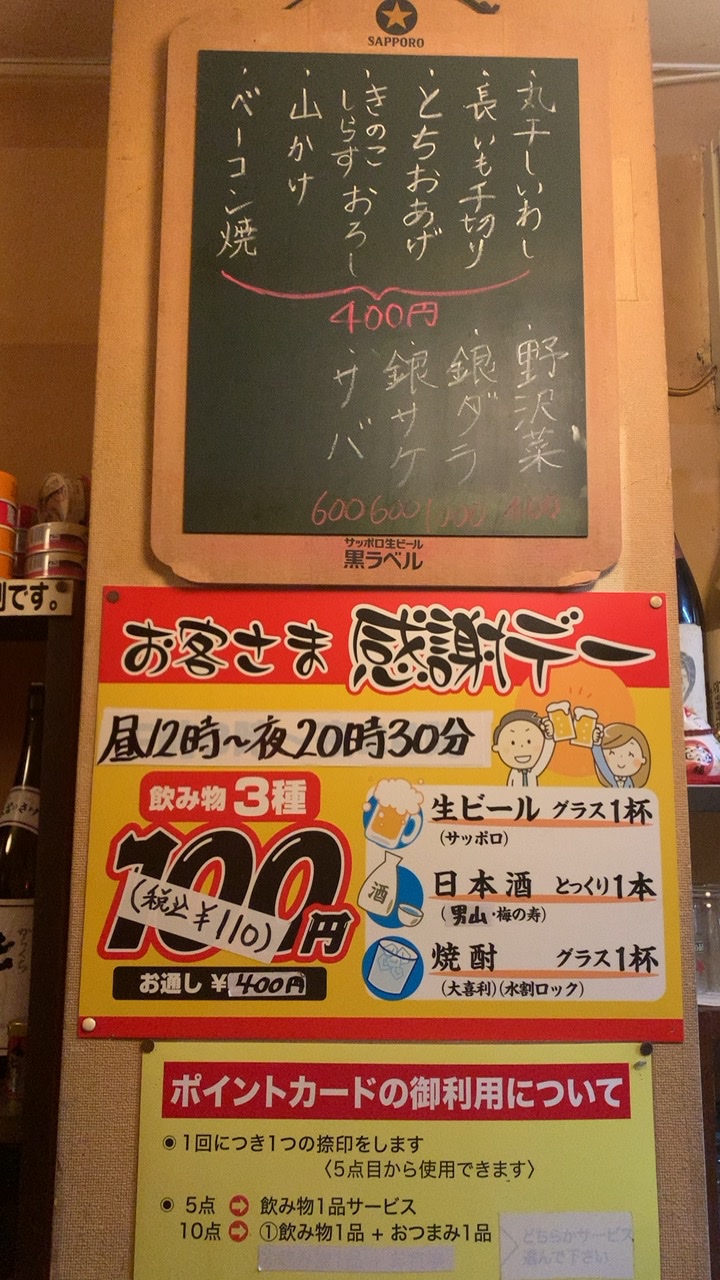 SAPPORO
・丸干しいわし
・長いも千切り
・とちおあげ
・きのこ
しらすおろし
・山かけ
・ベーコン焼
400円
・野沢菜
・銀ダラ
・銀サケ
・サバ
600 600
サッポロ生ビール
黒ラベル
です。
お客さま 感謝デー
昼12時〜夜20時30分
飲み物3種
100円
(税込¥110)
お通し ¥400円
生ビール グラス1杯
(サッポロ)
日本酒 とっくり1本
(男山・梅の寿)
焼酎 グラス1杯
(大喜利)(水割ロック)
酒
ポイントカードの御利用について
◉1回につき1つの捺印をします
〈5点目から使用できます〉
◉ 5点 ➡ 飲み物1品サービス
10点 ➡ ①飲み物1品 + おつまみ1品
どちらかサービス
選んで下さい